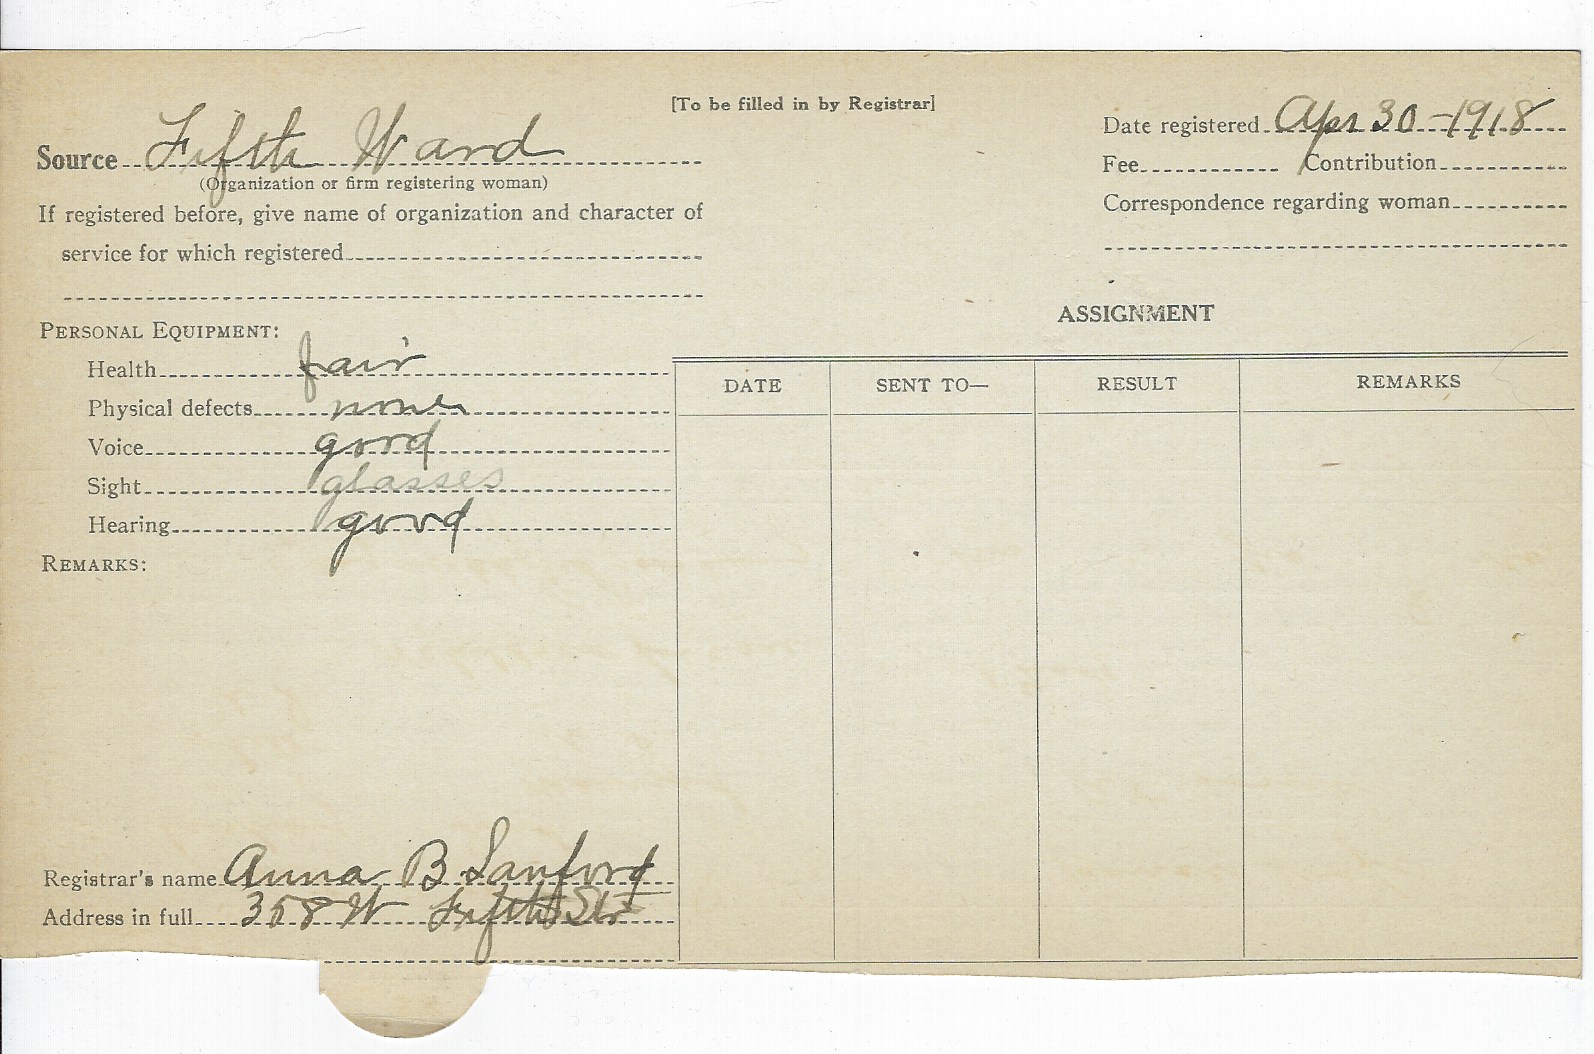 [To be filled in by Registrar]
Source Fifth Ward
(Organization or firm registering woman)
If registered before, give name of organization and character of
service for which registered
Date registered Apr 30 - 1918
Fee Contribution
Correspondence regarding woman
PERSONAL EQUIPMENT:
Health fair
Physical defects none
Voice good
Sight glasses
Hearing good
REMARKS:
Registrar's name Anna B Sanford
Address in full 358 W Fifth Str
ASSIGNMENT
DATE SENT TO— RESULT REMARKS